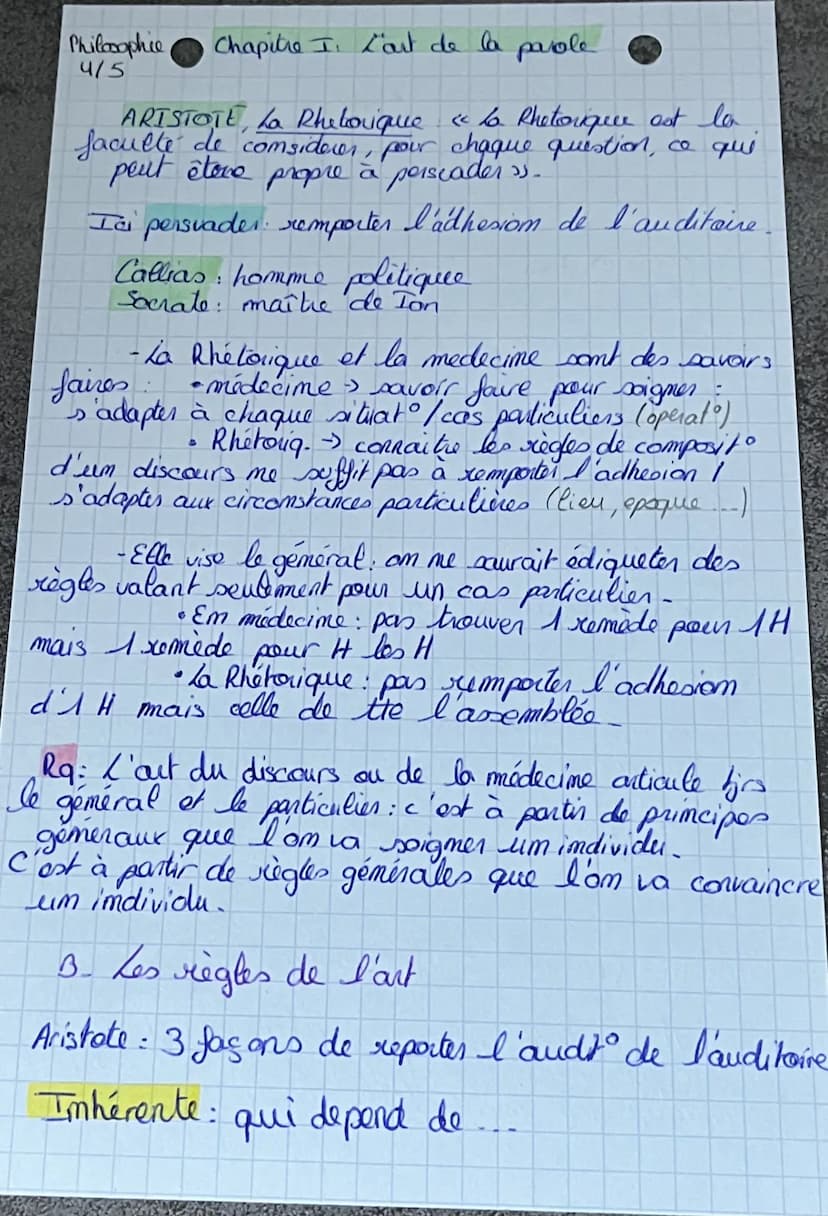 Philosophie Chapitre I: L'art de la parole
4/5
ARISTOTE, La Rhetorique « La Rhetorique est la
faculté de considerer, pour chaque question, ce qui
peut être propre à perscader ».
Ici persuader: remporter l'adhesion de l'auditoire.
Callias: homme politique
Socrate: maître de Ion
- La Rhétorique et la medecine sont des savoirs
faires: • médecine → savoir faire pour soigner:
s'adapter à chaque situat°/cas particuliers (operat°)
• Rhétoriq. → connaitre les règles de composit°
d'un discours ne suffit pas à remporter l'adhesion /
s'adapter aux circonstances particulières (lieu, epoque ...)
- Elle vise le général: on ne saurait édiqueter des
règles valant seulement pour un cas particulier.
• En médecine: pas trouver 1 remède pour 1H
mais 1 remède pour H les H
• La Rhétorique: pas remporter l'adhesion
d'1 H mais celle de tte l'assemblée.
Rq: L'art du discours ou de la médecine articule tjrs
le général et le particulier: c'est à partir de principes
généraux que l'on va soigner un individu.
C'est à partir de règles générales que l'on va convaincre
un individu.
B- Les règles de l'art
Aristote: 3 façons de reporter l'audit° de l'auditoire
Inhérente: qui depend de ...